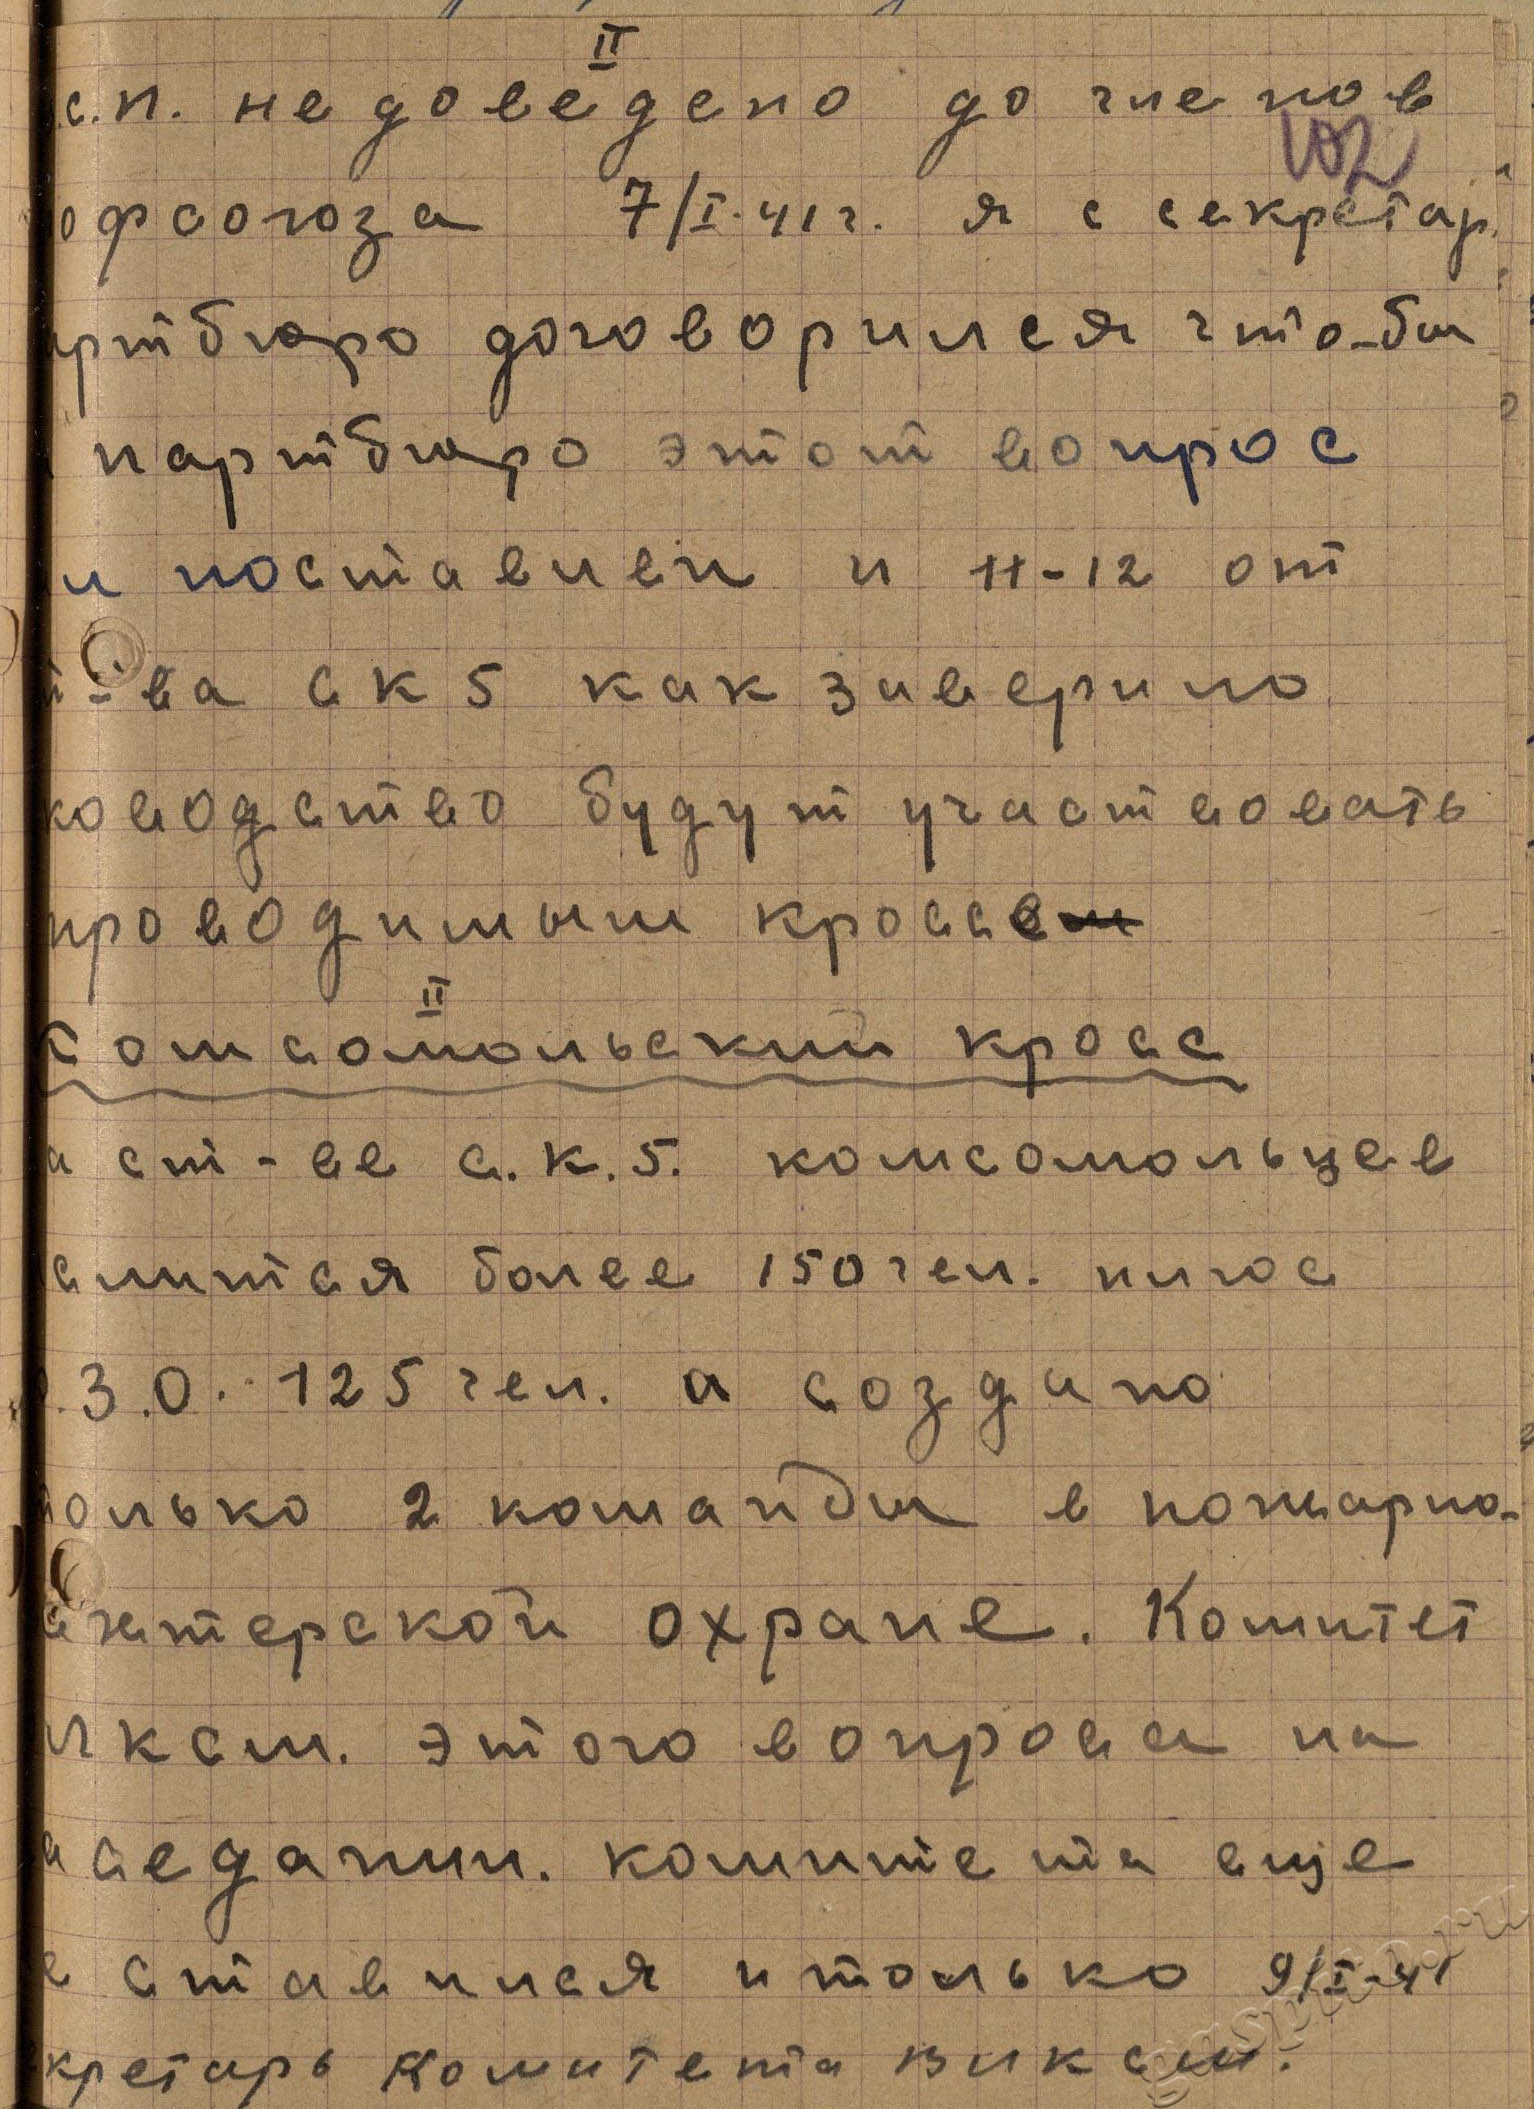 II
.с.п. не доведено до членов
102
офсоюза 7/I-41г. я с секретар
артбюро договорился что-бы
партбюро этот вопрос
л поставлен и 11-12 от
т-ва СК5 как заверило
ководство будут участвовать
проводимым кроссе
II
Комсомольский кросс
а ст-ве с.к.5. комсомольцев
слится более 150 чел. плюс
.З.О. 125 чел. а создано
только 2 команды в пожарно-
ахтерской охране. Комитет
лксм. этого вопроса на
аседании. комитета еще
е ставился и только 9/I-41
кретарь Комитета влксм.
gaspiko.ru